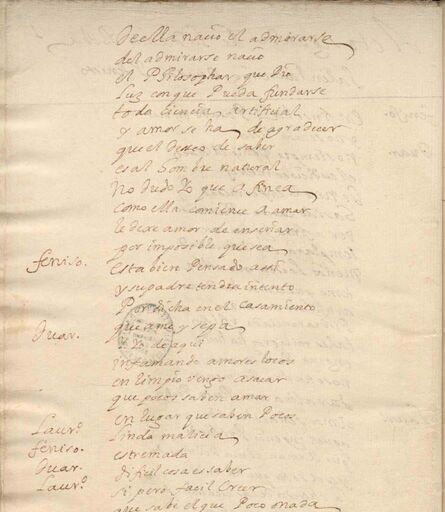 de ella nacio el admirarse
del admirarse nacio
el Philosophar que dio
Luz con que Pueda fundarse
toda ciencia artificial
y amor se ha de agradecer
que el deseo de saber
es al hombre natural
No dudo yo que a finea
como ella comience a amar
le dexe amor de enseñar
por imposible que sea
feniso. esta bien Pensado assi
y su padre tendra intento
Por dicha en el casamiento
que ame y sepa
Duar. y yo de aqui
infamando amores locos
en limpio vengo a sacar
que pocos saben amar
en lugar que saben Pocos
Laur.º linda malicia
feniso. estremada
Duar. dificil cosa es saber
Laur.º si pero facil Creer
que sabe el que Poco o nada